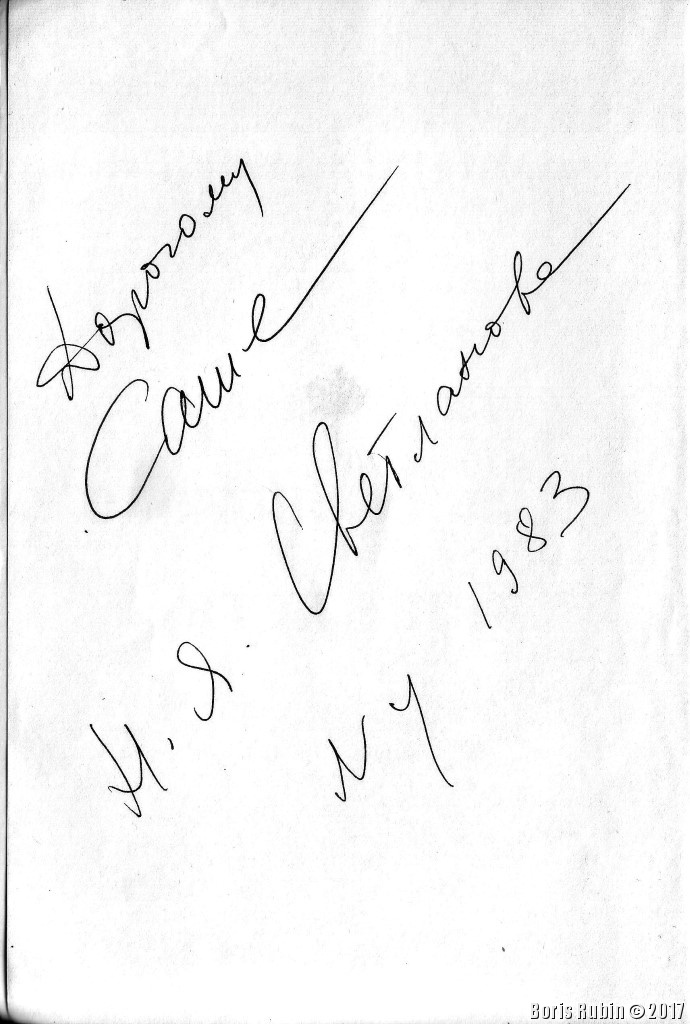 Дорогому
Саше
Н. Я. Светланова
NY 1983
Boris Rubin © 2017